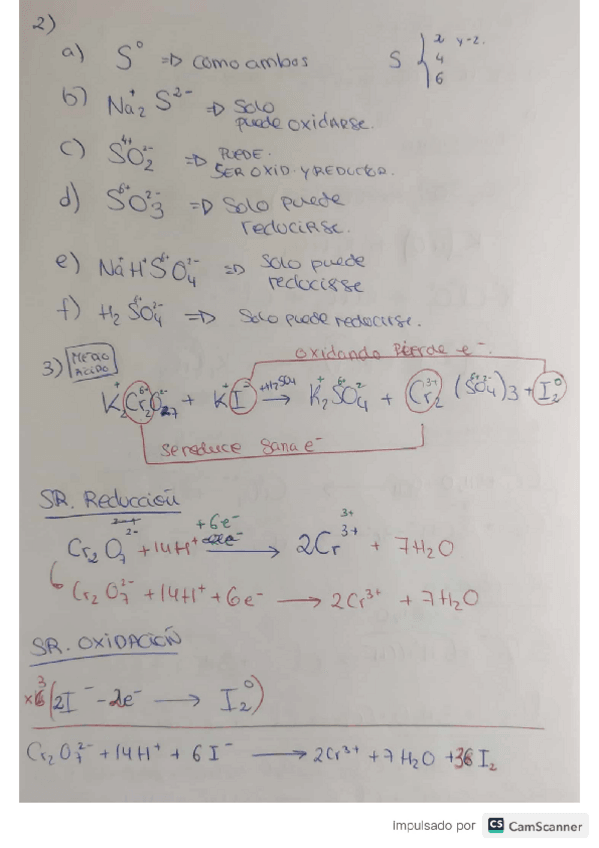 2)
a) S⁰ => como ambos S { 2 y -2. 4 6
b) Na₂⁺ S²⁻ => Solo
puede OXIDARSE.
c) S⁴⁺O₂²⁻ => PUEDE.
SER OXID. Y REDUCTOR.
d) S⁶⁺O₃²⁻ => Solo puede
reducirse.
e) Na⁺H⁺S⁶⁺O₄²⁻ => Solo puede
reducirse
f) H₂⁺S⁶⁺O₄²⁻ => Solo puede reducirse.
oxidando Pierde e⁻.
3) MEDIO ACIDO
K₂⁺Cr₂⁶⁺O₇²⁻ + K⁺I⁻ +H₂SO₄ → K₂⁺S⁶⁺O₄²⁻ + Cr₂³⁺(S⁶⁺O₄²⁻)3 + I₂⁰
se reduce gana e⁻
SR. Reducción
Cr₂O₇²⁻ + 14H⁺ +6e⁻ → 2Cr³⁺ + 7H₂O
Cr₂O₇²⁻ + 14H⁺ + 6e⁻ → 2Cr³⁺ + 7H₂O
SR. OXIDACIÓN
x3 (2I⁻ - 2e⁻ → I₂⁰)
Cr₂O₇²⁻ + 14H⁺ + 6I⁻ → 2Cr³⁺ + 7H₂O + 3I₂
Impulsado por CS CamScanner